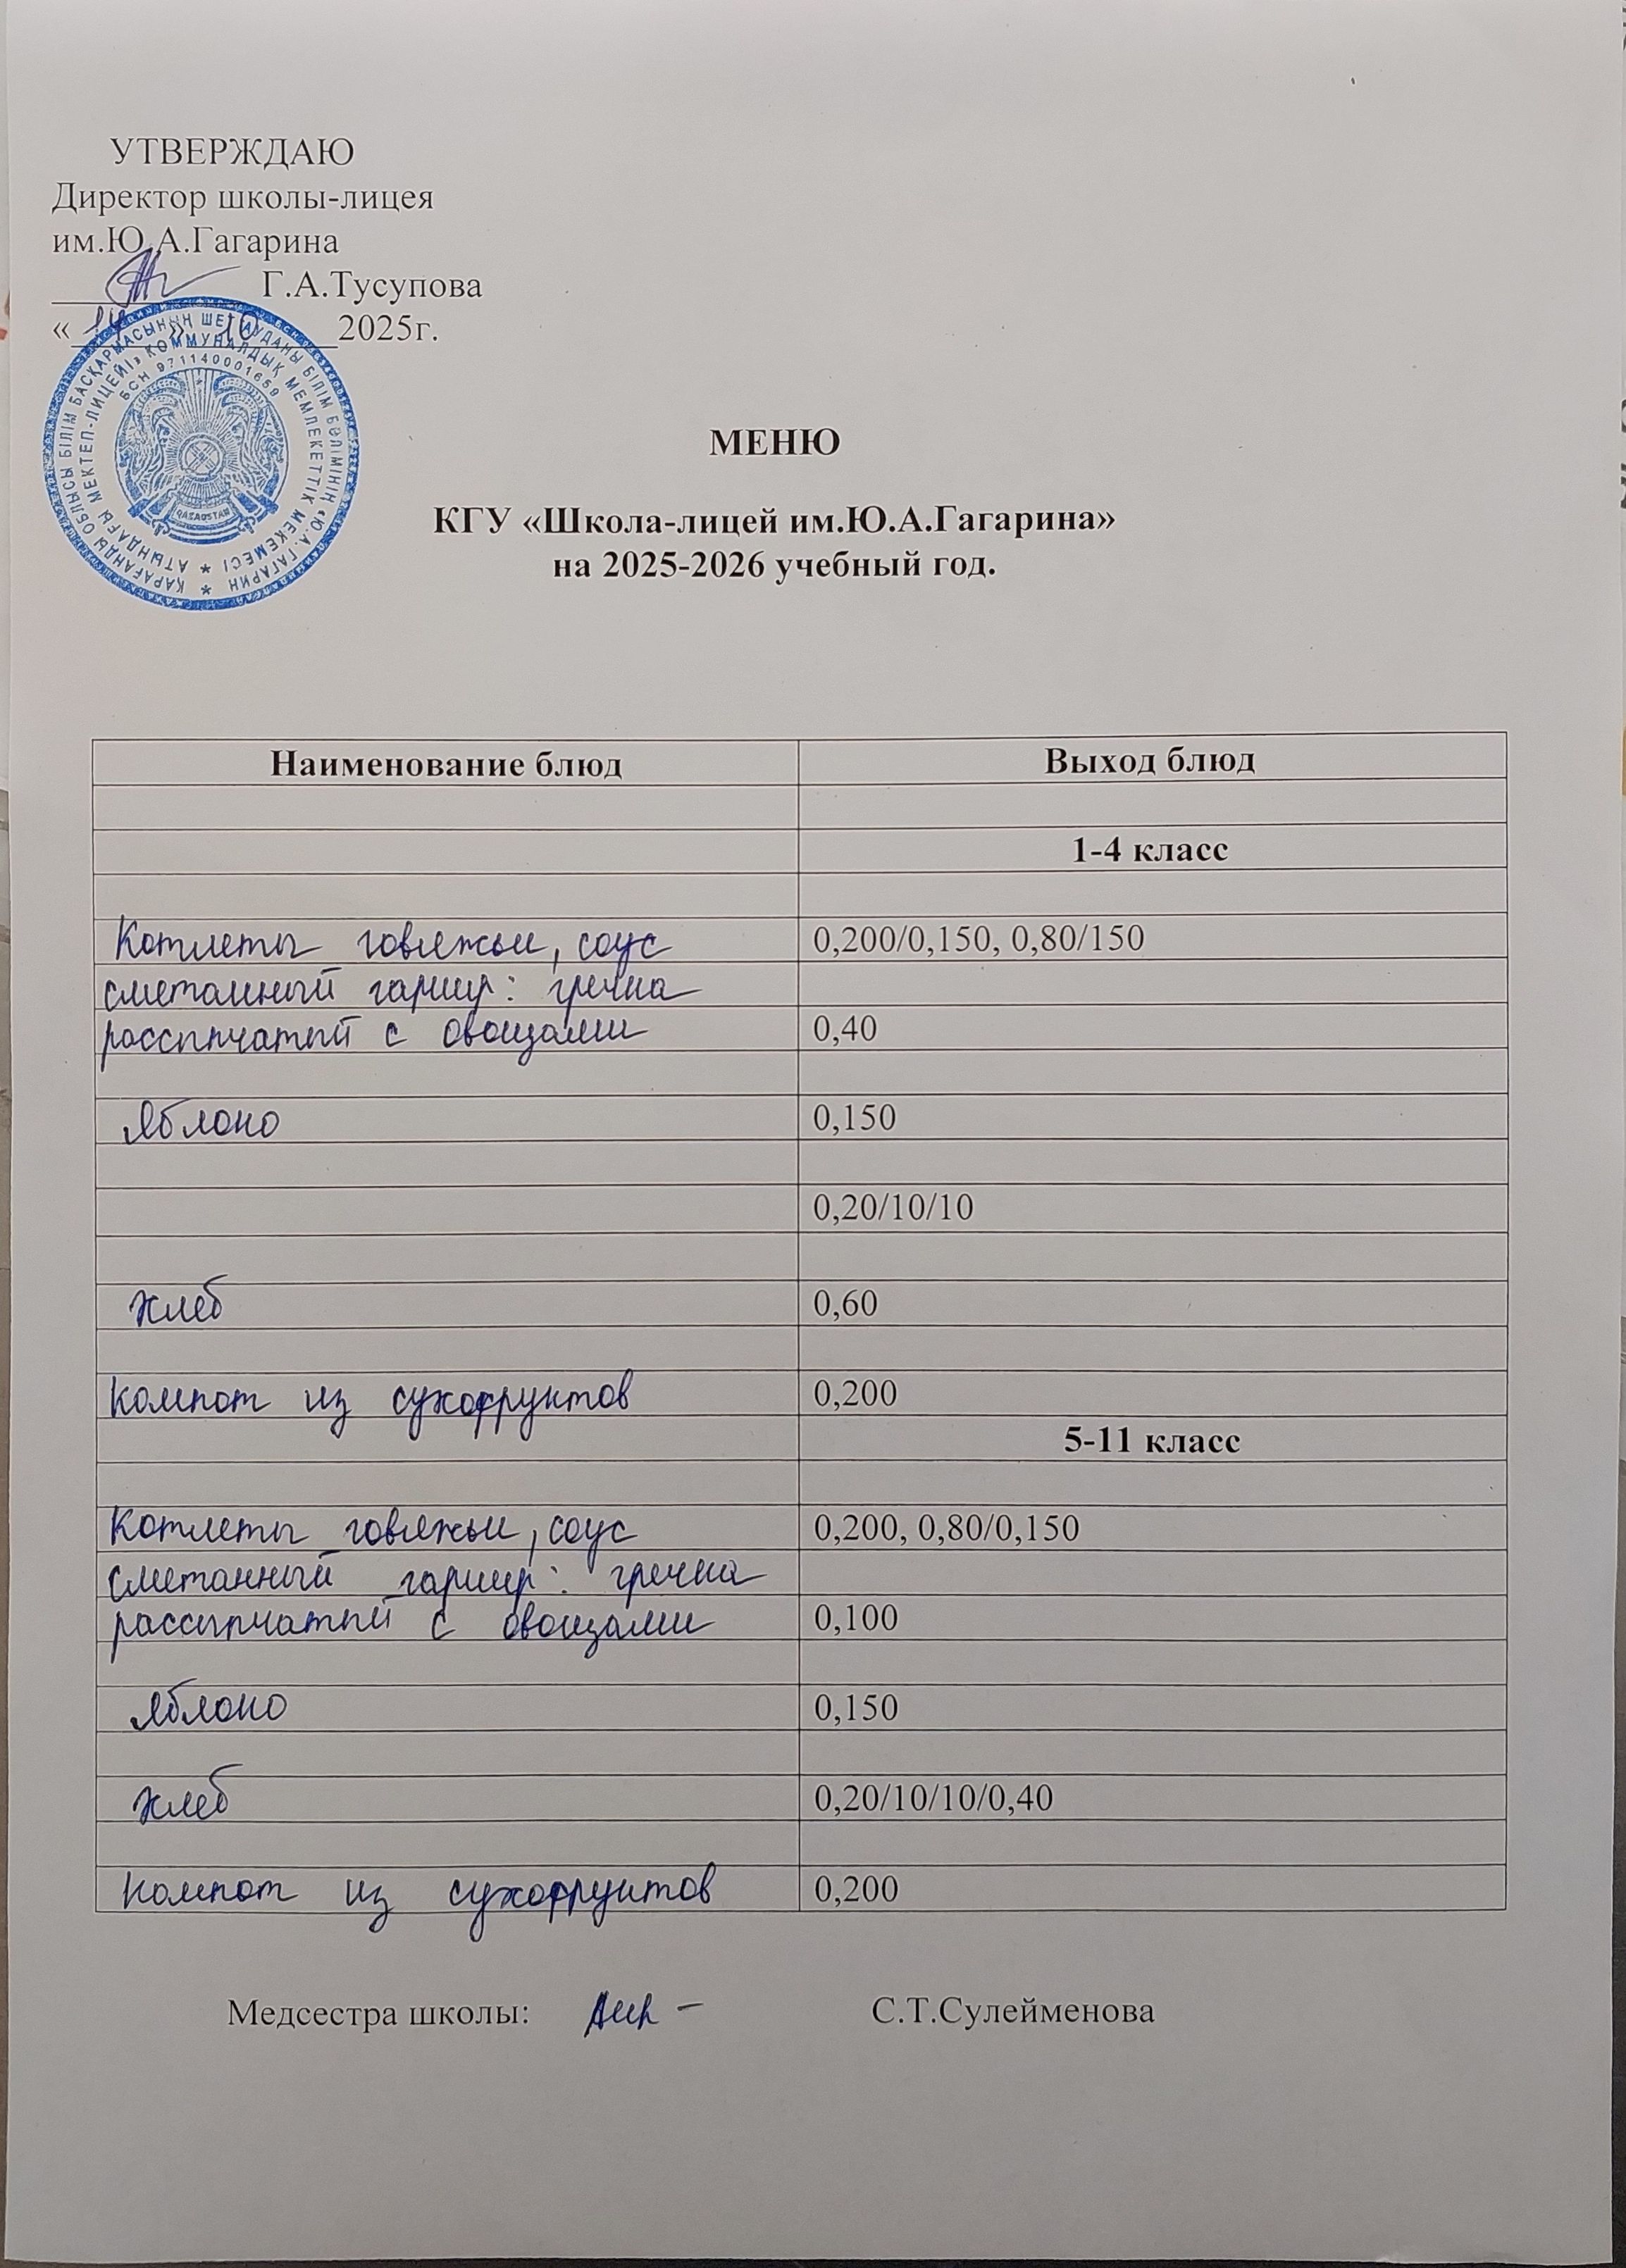 УТВЕРЖДАЮ
Директор школы-лицея
им.Ю.А.Гагарина
Г.А.Тусупова
«14» 10 2025г.
БСН 971140001659
QAZAQSTAN
МЕНЮ
КГУ «Школа-лицей им.Ю.А.Гагарина»
на 2025-2026 учебный год.
Наименование блюд Выход блюд
1-4 класс
Котлеты говяжьи, соус 0,200/0,150, 0,80/150
сметанный гарнир: гречка
рассыпчатый с овощами 0,40
Яблоко 0,150
0,20/10/10
Хлеб 0,60
Компот из сухофруктов 0,200
5-11 класс
Котлеты говяжьи, соус 0,200, 0,80/0,150
сметанный гарнир: гречка
рассыпчатый с овощами 0,100
Яблоко 0,150
Хлеб 0,20/10/10/0,40
Компот из сухофруктов 0,200
Медсестра школы: С.Т.Сулейменова